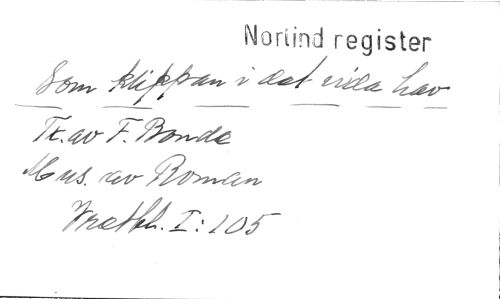 Nortind register
Som klippan i det vida hav
Tx. av F. Bonde
Mus. av Roman
I: 105